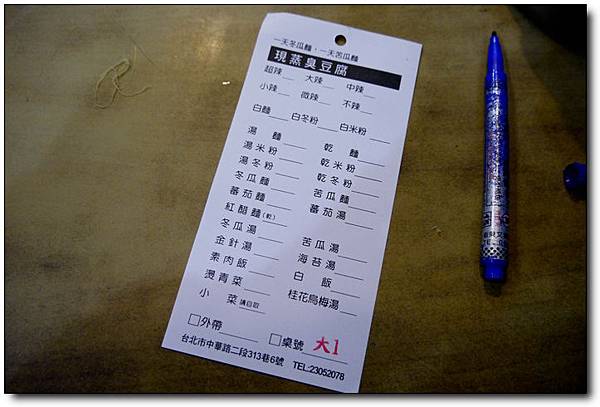 一天冬瓜麵，一天苦瓜麵
現蒸臭豆腐
超辣 大辣 中辣
小辣 微辣 不辣
白麵 白冬粉 白米粉
湯麵 乾麵
湯米粉 乾米粉
湯冬粉 乾冬粉
冬瓜麵 苦瓜麵
蕃茄麵 蕃茄湯
紅醋麵(乾)
冬瓜湯 苦瓜湯
金針湯 海苔湯
素肉飯 白飯
燙青菜 桂花烏梅湯
小菜 請自取
□外帶 □桌號 大1
台北市中華路二段313巷6號 TEL:23052078